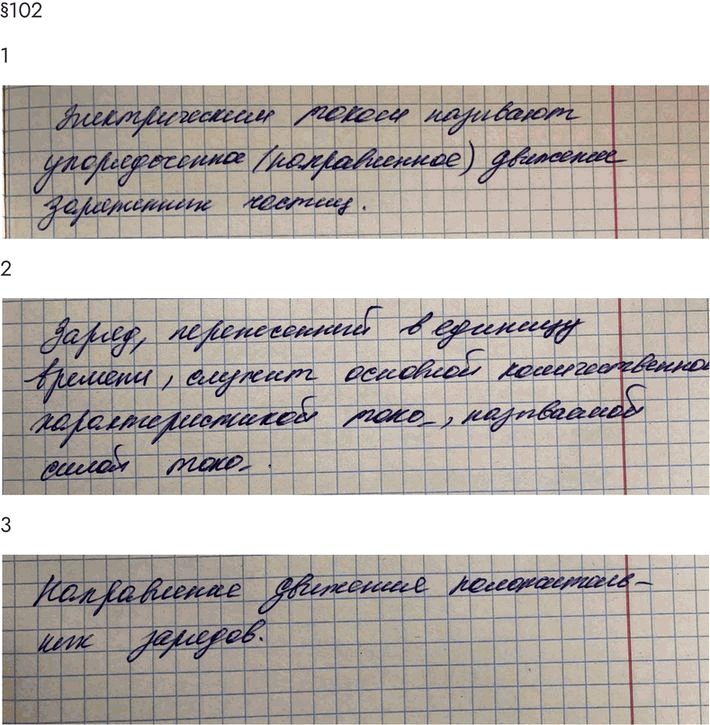 §102
1
Электрическим током называют
упорядоченное (направленное) движение
заряженных частиц.
2
Заряд, перенесенный в единицу
времени, служит основной количественной
характеристикой тока, называемой
силой тока.
3
Направление движения положитель-
ных зарядов.